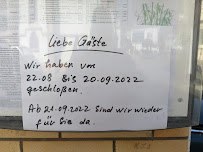 Liebe Gäste
Wir haben vom
22.08 bis 20.09.2022
geschloßen.
Ab 21.09.2022 sind wir wieder
für Sie da.